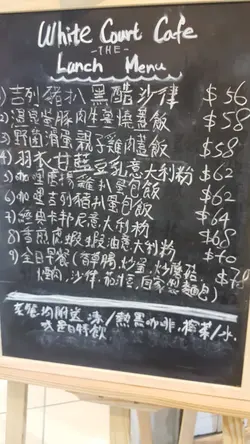 White Court Cafe
-THE-
Lunch Menu
1) 吉列豬扒黑醋沙律 $56
2) 溫泉蛋豚肉生薑燒蓋飯 $58
3) 野菌滑蛋親子雞肉蓋飯 $58
4) 羽衣甘藍豆乳意大利粉 $62
5) 咖喱 雞扒蛋包飯 $62
6) 咖喱吉列豬扒蛋包飯 $64
7) 經典卡邦尼意大利粉 $68
8) 虎蝦蝦油意大利粉 $70
9) 全日早餐(香腸,炒蛋,炒蘑菇, $78
煙肉,沙律,茄,自家 麵包)
套餐均附送 凍/熱黑咖啡,檸茶/水
或是日特飲